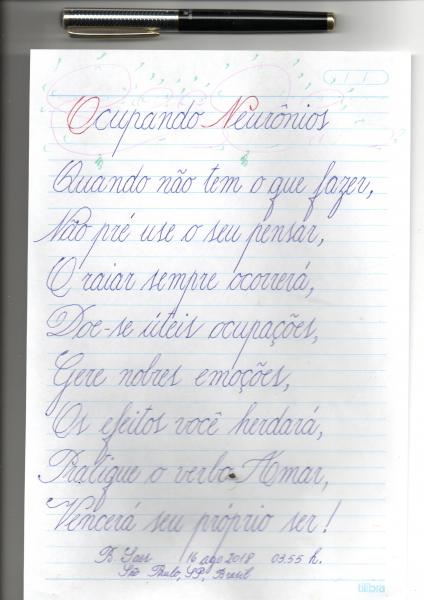 Ocupando Neurônios
Quando não tem o que fazer,
Não pré use o seu pensar,
O raiar sempre ocorrerá,
Doe-se úteis ocupações,
Gere nobres emoções,
Os efeitos você herdará,
Pratique o verbo Amar,
Vencerá seu próprio ser!
16 ago 2018 03:55 h.
São Paulo, SP, Brasil
tilibra